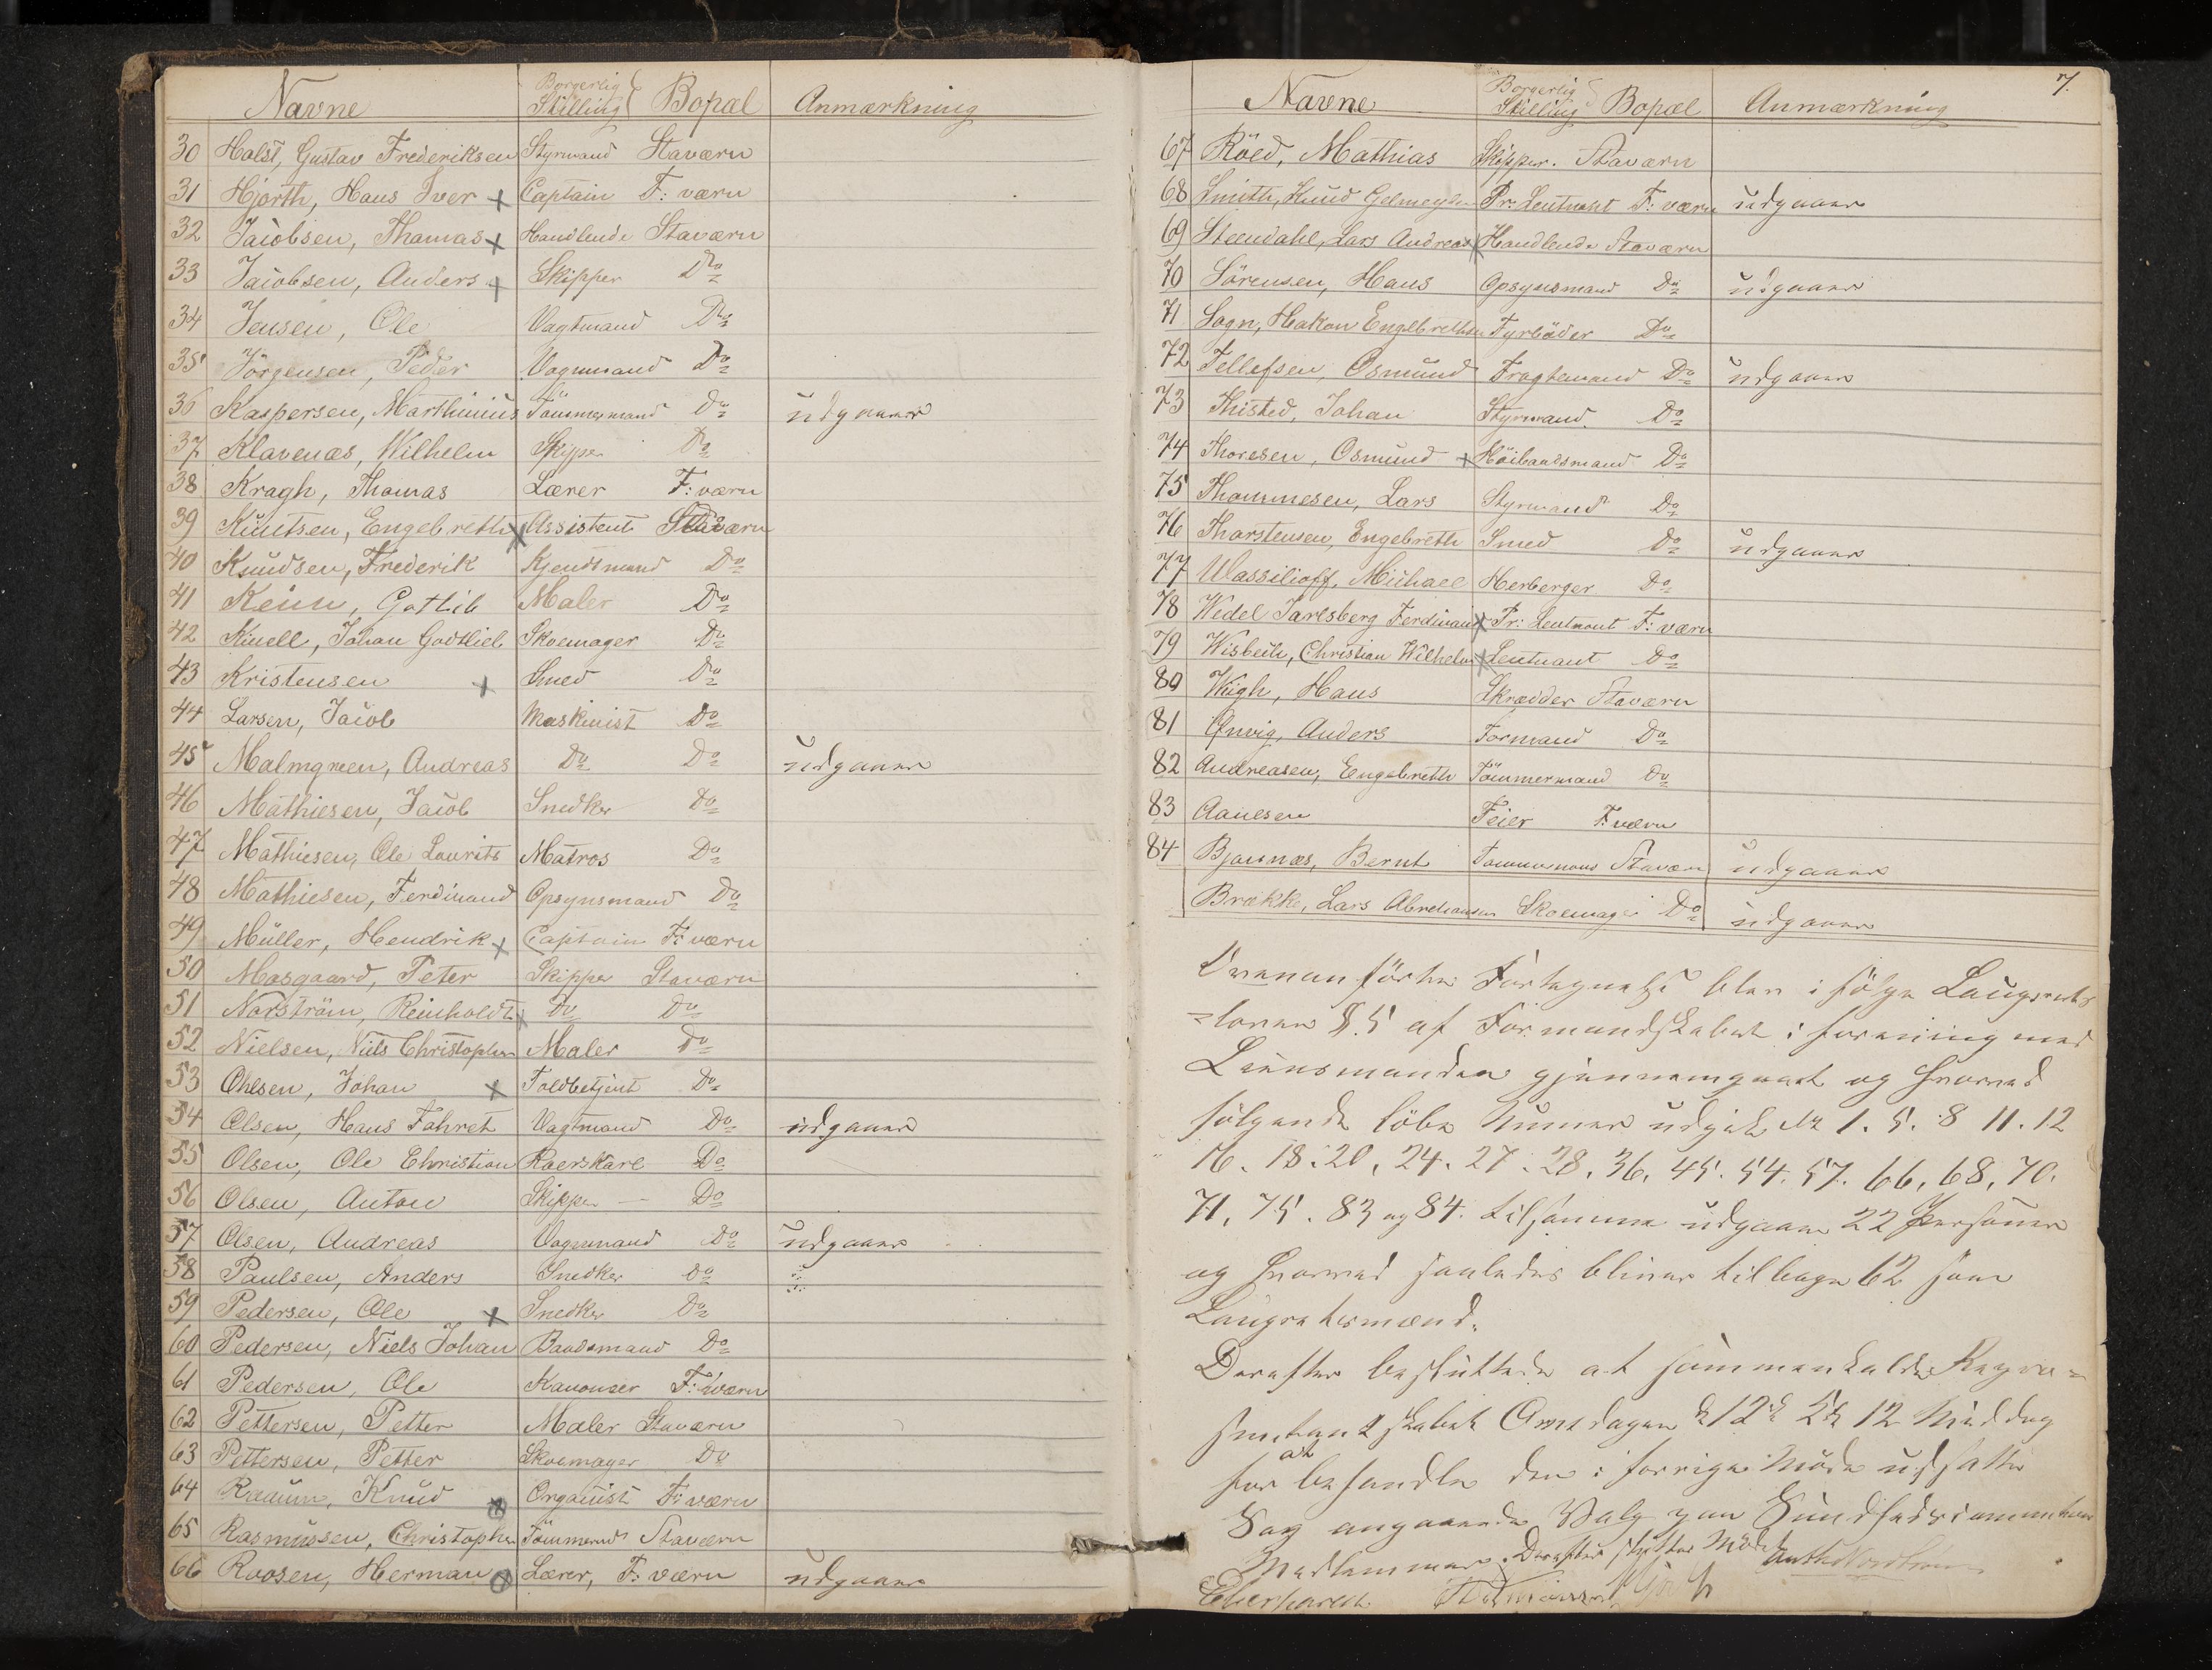 Navne Borgerlig Stilling Bopæl Anmærkning
30 Holst, Gustav Frederiksen Styrmand Staværn
31 Hjorth, Hans Iver x Captain F: værn
32 Jacobsen, Thomas x Handlende Staværn
33 Jacobsen, Anders x Skipper Do
34 Jensen, Ole Vagtmand Do
35 Jörgensen, Peder Vognmand Do
36 Kaspersen, Marthinius Tömmermand Do udgaaer
37 Klavenæs, Wilhelm Skipper Do
38 Kragh, Thomas Lærer F: værn
39 Knutsen, Engebreth x Assistent Staværn
40 Knudsen, Frederik Kjendsmand Do
41 Keun, Gotlib Maler Do
42 Kinell, Johan Godtlieb Skoemager Do
43 Kristensen x Smed Do
44 Larsen, Jacob Maskinist Do
45 Malmgreen, Andreas Do Do udgaaer
46 Mathiesen, Jacob Snedker Do
47 Mathiesen, Ole Laurits Matros Do
48 Mathiesen, Ferdinand Opsynsmand Do
49 Müller, Hendrik x Captain F: værn
50 Mosgaard, Peter Skipper Staværn
51 Norström, Reinholdt x Do Do
52 Nielsen, Niels Christopher Maler Do
53 Ohlsen, Johan x Toldbetjent Do
54 Olsen, Hans Fahret Vagtmand Do udgaaer
55 Olsen, Ole Christian Roerskarl Do
56 Olsen, Anton Skipper — Do
57 Olsen, Andreas Vognmand Do udgaaer
58 Paulsen, Anders Snedker Do
59 Pedersen, Ole x Snedker Do
60 Pedersen, Niels Johan Baadsmand Do
61 Pedersen, Ole Kanoneer F: værn
62 Pettersen, Petter Maler Staværn
63 Pettersen, Petter Skoemager Do
64 Raaum, Knud x Organist F: værn
65 Rasmussen, Christopher Tömmermd Staværn
66 Roosen, Herman x Lærer, F: værn udgaaer
7.
Navne Borgerlig Stilling Bopæl Anmærkning
67 Röed, Mathias Skipper. Staværn
68 Smith, Knud Gelmeyden Pr. Leutnant F: værn udgaaer
69 Steendahl, Lars Andreas x Handlende Staværn
70 Sörensen, Hans Opsynsmand Do udgaaer
71 Sogn, Hakon Engelbrethsen Fyrböder Do
72 Tellefsen, Osmund Fragtemand Do udgaaer
73 Thisted, Johan Styrmand. Do
74 Thoresen, Osmund x Höibaadsmand Do
75 Thommesen, Lars Styrmand Do
76 Thorstensen, Engebreth Smed Do udgaaer
77 Wassilioff, Michael Herberger Do
78 Wedel Jarlsberg Ferdinand x Pr: Leutnant F: værn
79 Wisbech, Christian Wilhelm x Leutnant Do
80 Wiigh, Hans Skrædder Staværn
81 Anders Formand Do
82 Andreasen, Engebreth Tömmermand Do
83 Aanesen Feier F: værn
84 Bjonnæs, Bernt Tömmermand Staværn udgaaer
Brække, Lars Abrahamsen Skoemager Do udgaaer
Ovenanförte Fortegnelse blev i fölge Laugrets
=loven §. 5 af Formandskabet i forening med
Lensmanden gjennemgaaet og hvorved
fölgende löbe Numer udgik No 1. 5. 8 11. 12
16. 18. 20, 24. 27. 28. 36. 45. 54. 57. 66, 68, 70.
71, 75. 83 og 84. tilsamme udgaaer 22 Personer
og hvorved saaledes bliver tilbage 62 som
Laugrettesmænd.
Derefter besluttede at sammenkalde Repræ=
sentantskabet Onsdagen d 12te Kl 12 Middag
for at behandle den i forrige Möde udsatte
Sag angaaende Valg paa Sundhedscommissions
Medlemmer. Derefter sluttet Mödet